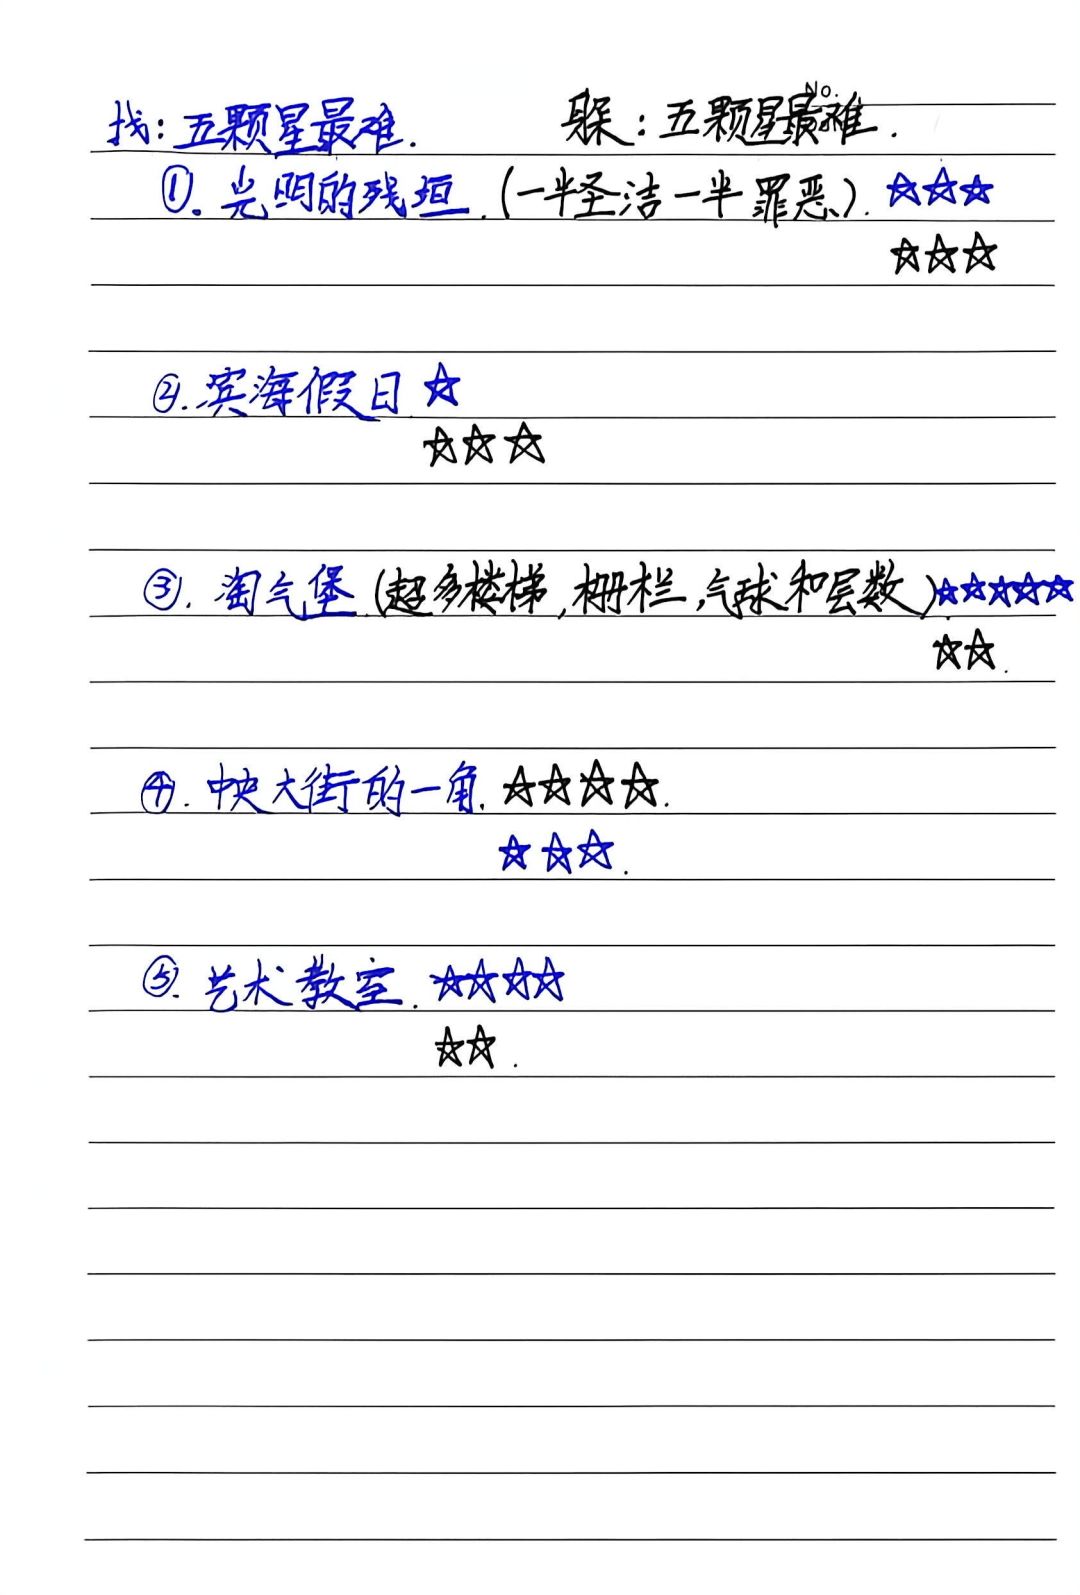 No.
找：五颗星最难. 躲：五颗星最难.
①. 光明的残垣.(一半圣洁一半罪恶). ☆☆☆
☆☆☆
②. 滨海假日 ☆
☆☆☆
③. 淘气堡.(超多楼梯,栅栏,气球和层数). ☆☆☆☆☆
☆☆.
④. 中央大街的一角. ☆☆☆☆.
☆☆☆.
⑤. 艺术教室. ☆☆☆☆
☆☆.